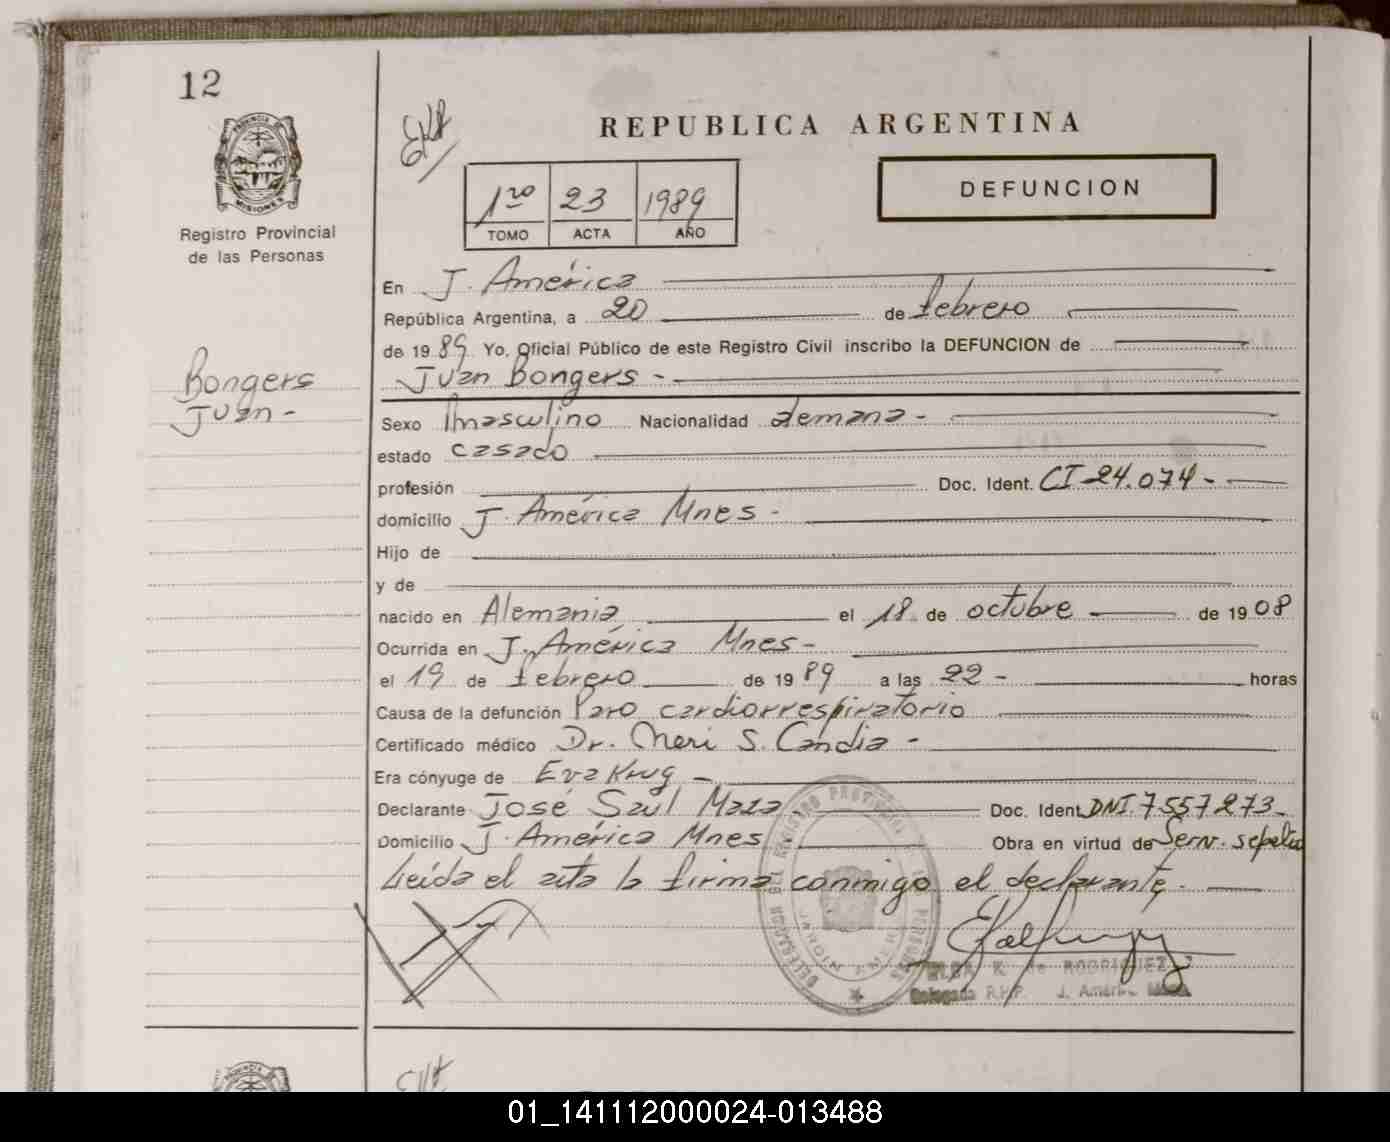 12
PROVINCIA DE
MISIONES
Registro Provincial
de las Personas
Bongers
Juan -
REPUBLICA ARGENTINA
1ro 23 1989
TOMO ACTA AÑO
DEFUNCION
En J. América
República Argentina, a 20 de febrero
de 1989 Yo, Oficial Público de este Registro Civil inscribo la DEFUNCION de
Juan Bongers -
Sexo masculino Nacionalidad alemana -
estado casado
profesión Doc. Ident. CI 24.074 -
domicilio J. América Mnes -
Hijo de
y de
nacido en Alemania el 18 de octubre de 1908
Ocurrida en J. América Mnes -
el 19 de febrero de 1989 a las 22 - horas
Causa de la defunción Paro cardiorrespiratorio
Certificado médico Dr. Neri S. Candia -
Era cónyuge de Eva Krug -
Declarante José Saúl Maza - Doc. Ident. DNI. 7557273 -
Domicilio J. América Mnes - Obra en virtud de Serv. sepelio
Leída el acta la firma conmigo el declarante. -
DELEGACION DEL REGISTRO PROVINCIAL DE LAS PERSONAS
JARDIN AMERICA
K. de RODRIGUEZ
Delegada R.P.P. J. América
01_141112000024-013488